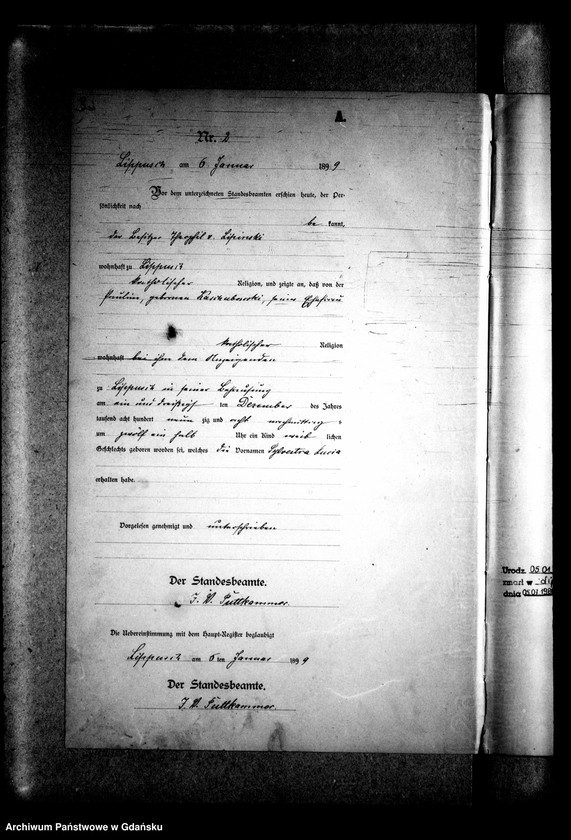 A.
Nr. 2
Lippusch am 6 Januar 1899
Vor dem unterzeichneten Standesbeamten erschien heute, der Per-
sönlichkeit nach
be kannt,
der Besitzer Theophil v. Lipinski
wohnhaft zu Lippusch
katholischer Religion, und zeigte an, daß von der
Pauline, geborenen Kaschubowski, seiner Ehefrau
katholischer Religion
wohnhaft bei ihm dem Anzeigenden
zu Lippusch in seiner Behausung
am ein und dreißigst ten Dezember des Jahres
tausend acht hundert neun zig und acht nachmittag s
um zwölf ein halb Uhr ein Kind weib lichen
Geschlechts geboren worden sei, welches die Vornamen Sylvestra Lucia
erhalten habe.
Vorgelesen genehmigt und unterschrieben
Der Standesbeamte.
J. V. Puttkammer.
Die Uebereinstimmung mit dem Haupt-Register beglaubigt
Lippusch am 6 ten Januar 1899
Der Standesbeamte.
J. V. Puttkammer.
Urodz. 05.01
zmarł w
dnia 05.01.198
Archiwum Państwowe w Gdańsku